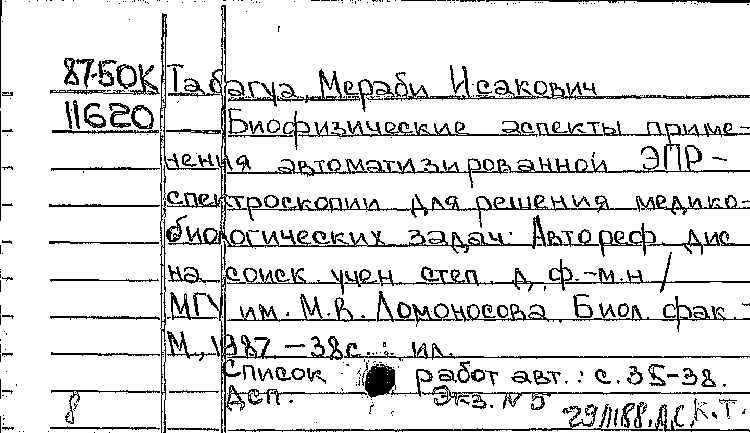 87-50К Табагуа, Мераби Исакович
11620 Биофизические аспекты приме-
нения автоматизированной ЭПР-
спектроскопии для решения медико-
биологических задач: Автореф. дис
на соиск. учен. степ. д. ф.-м.н /
МГУ им. М.В. Ломоносова. Биол. фак. -
М., 1987. - 38с.: ил.
Список работ авт.: с. 35-38.
Дсп. Экз. N 5
8 К.Т.